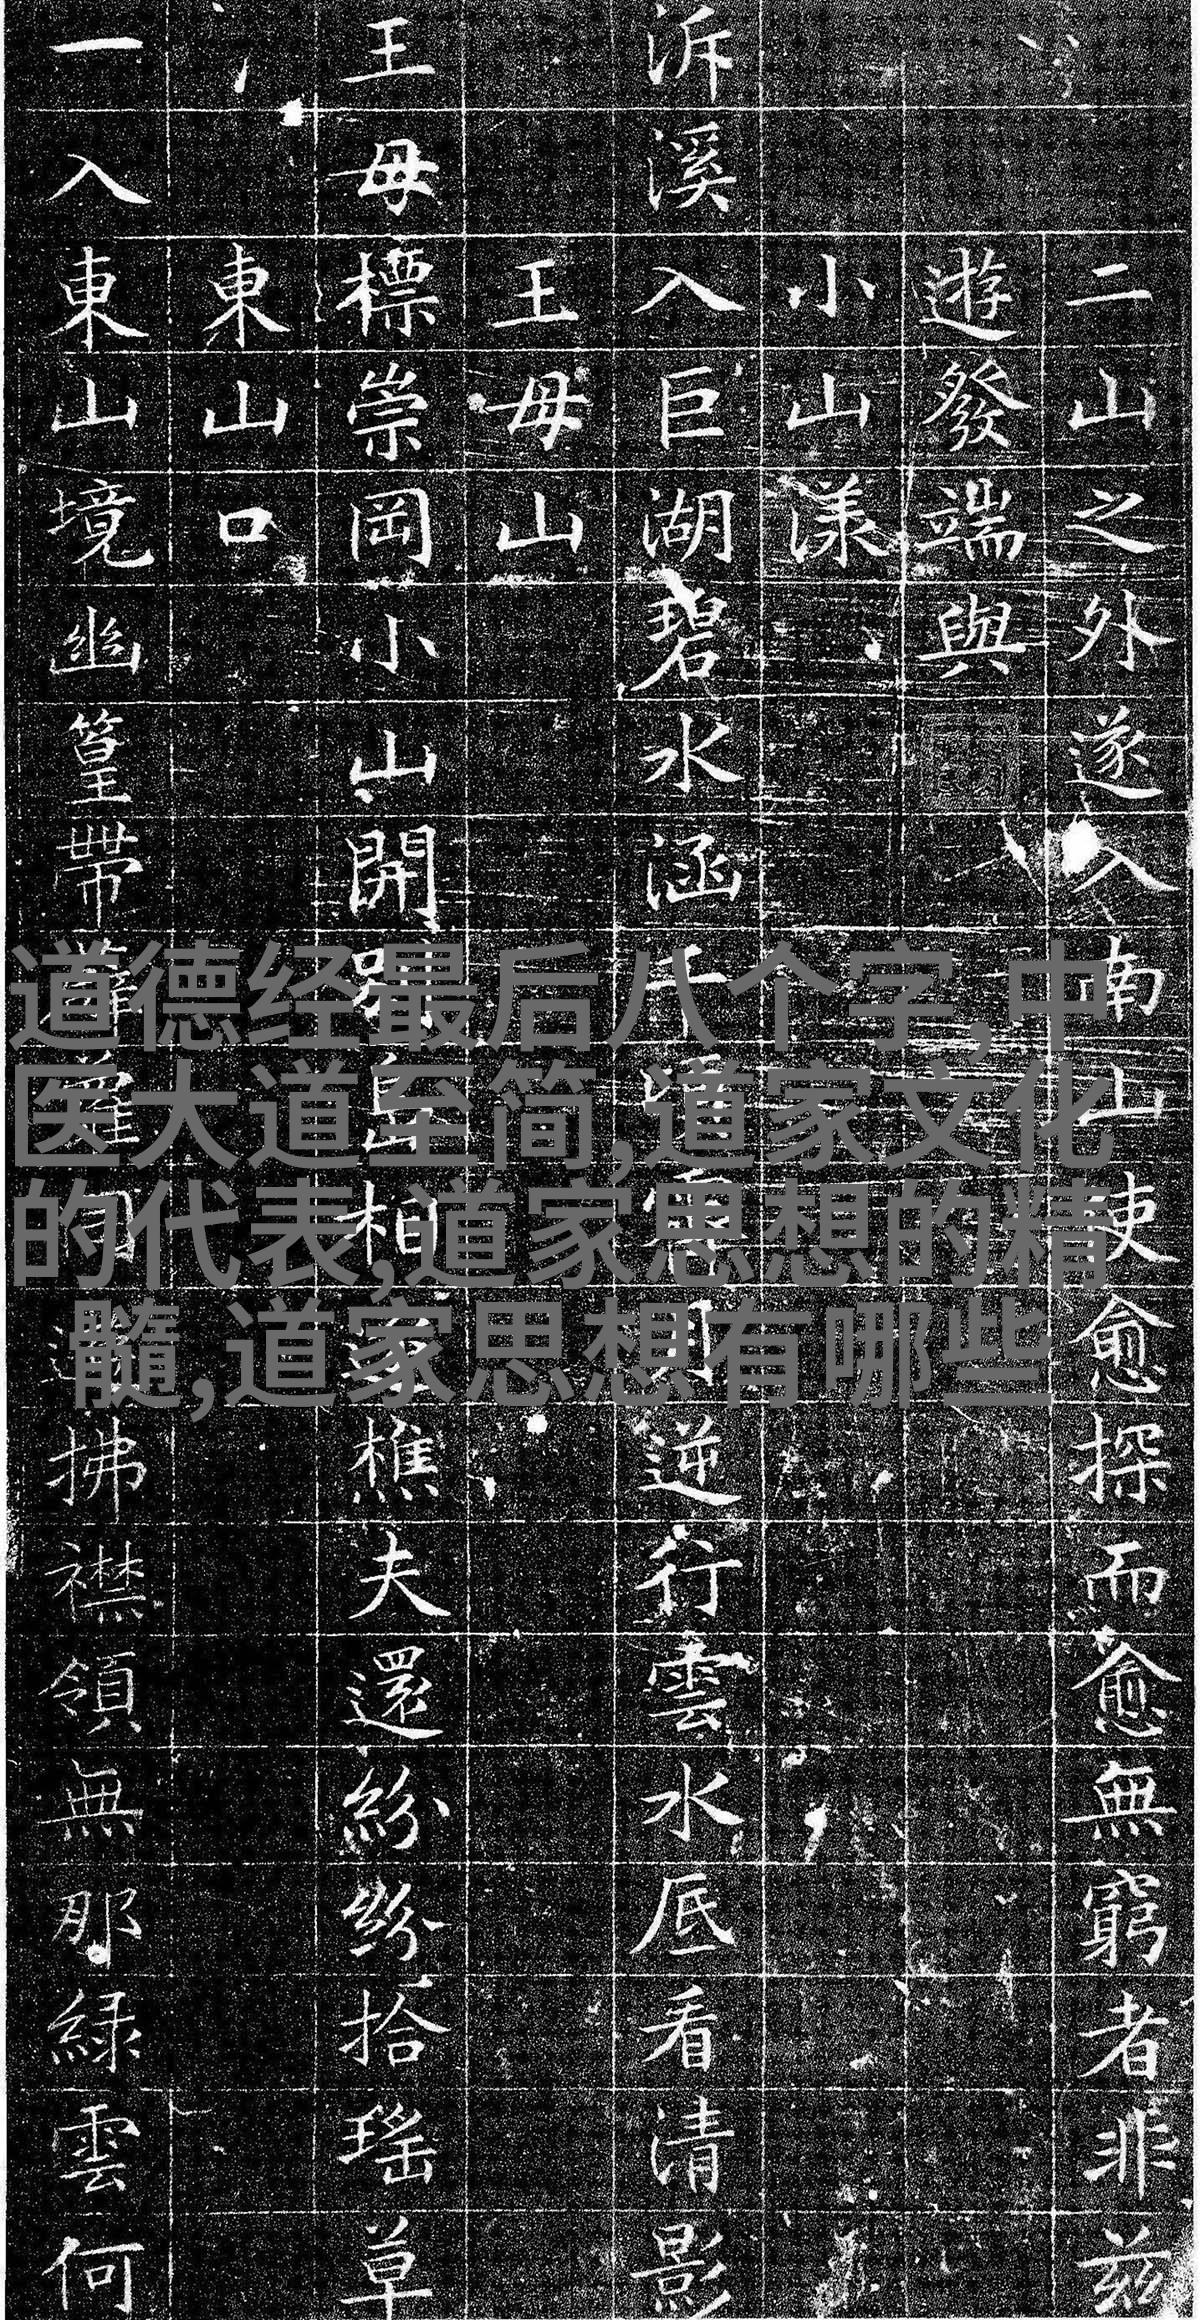 二山之外遂入南山使愈探而愈無窮者非茲
遊發端與
小山漾
泝溪入巨湖碧水涵千頃月逆行雲水底看清影
王母山
王母標崇岡小山開相樵夫還紛紛拾瑤草
東山口
一入東山境幽篁帶拂襟領無那綠雲何
道德经最后八个字,中
医大道至简,道家文化
的代表,道家思想的精
髓,道家思想有哪些